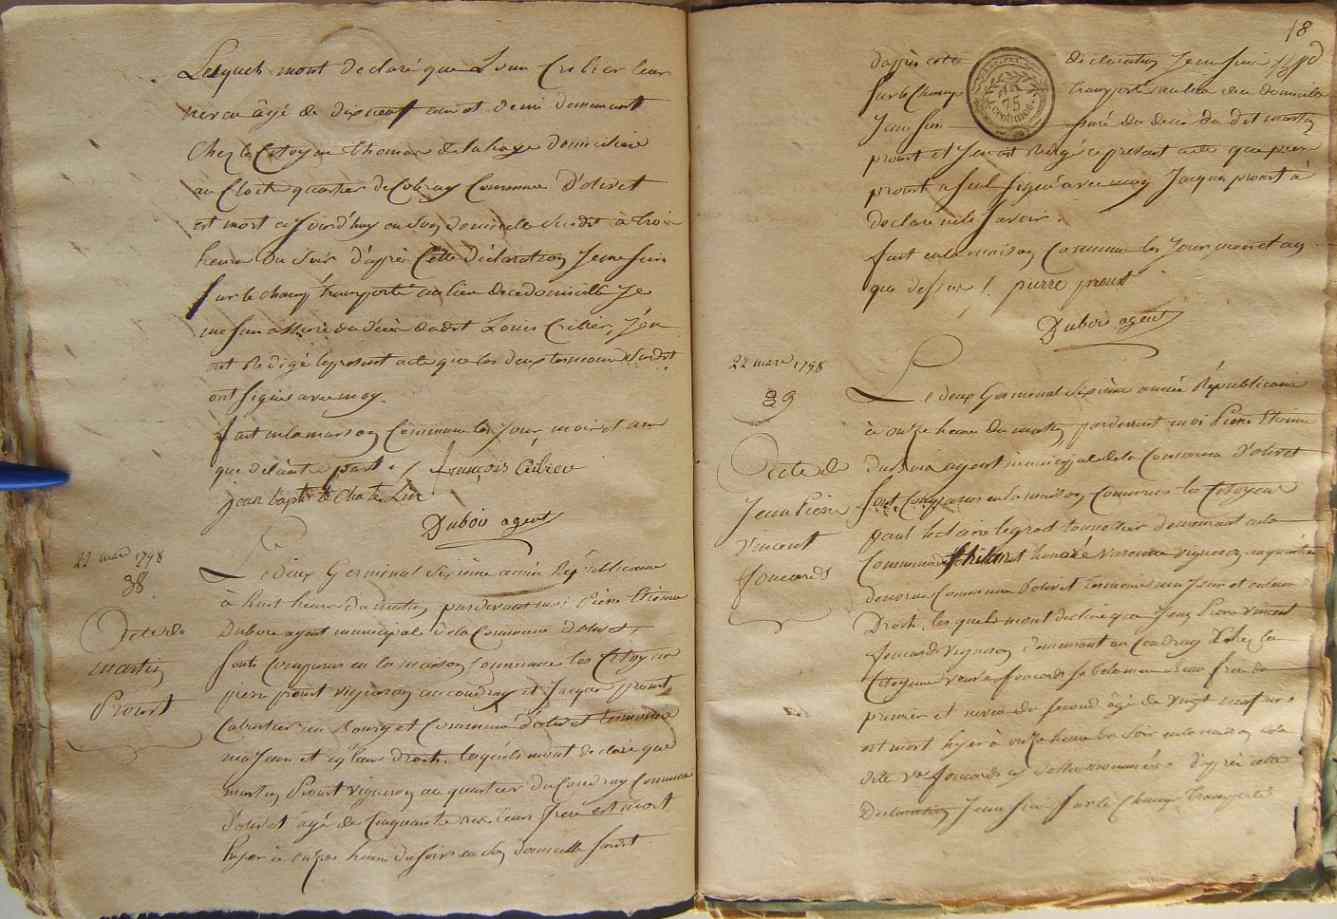 Lesquels m'ont déclaré que Louis Cribier leur
neveu âgé de dixneuf ans et demi demeurant
Chez le Citoyen thomas delahaye domicilié
au Cloit quartier de Couvray Commune D'olivet
est mort ce jourd'huy en son domicile susdit à trois
heures du soir d'après Cette Déclaration Je me suis
sur le champ transporté au lieu de ce domicille Je
me suis assuré du décès dudit Louis Cribier, j'en
ait Rédigé le present acte que les deux temoins susdit
ont signés avec moy.
fait en la maison Commune les Jour, mois et an
que de l'autre part ./. françois Cribier
jean baptiste
Dubois agent
22 mars 1798
38
Décès de
Martin
Proust
Le deux Germinal Sixieme année Républicaine
à huit heures du matin pardevant moi Pierre Etienne
Dubois agent municipal de la Commune d'olivet,
sont Comparus en la maison Commune les Citoyens
pierre proust vigneron au coudray et Jacque proust
Cabartier au Bourg et Commune d'olivet temoins
majeurs et en leurs droits, lesquels m'ont déclaré que
martin Proust vigneron au quartier du Coudray Commune
d'olivet agé de Cinquante leur frere est mort
hyer à onze heures du soir en son domicille susdit
18
d'après cette déclaration Je me suis
sur le Champ transporté au lieu du domicille
Je me suis assuré du deces du dit martin
proust et J'en ait Rédigé ce present acte que pierre
proust a seul signé avec moy Jacque proust à
declaré ne le savoir.
fait en la maison Commune les jour mois et an
que dessus ./. pierre proust
Dubois agent
22 mars 1798
39
Décès de
Jean Pierre
Vincent
foucards
Le deux Germinal Sixieme année Républicaine
à onze heures du matin pardevant moi Pierre Etienne
Dubois agent municipal de la Commune D'olivet
sont Comparus en la maison Commune les Citoyens
paul hilaire legrod tonnelier demeurant à la
Commune et honoré varenne vigneron
Commune D'olivet temoins majeurs et en leurs
Droits, lesquels m'ont declaré que Jean Pierre Vincent
foucards vigneron demeurant au Coudray Chez la
Citoyenne veuve foucards sa belle mere frere du
premier et neveu du second âgé de vingt neuf ans
est mort hyer à onze heures du soir en la maison de la
dite Ve foucards d'après cette
Declaration Je me suis sur le Champ transporté